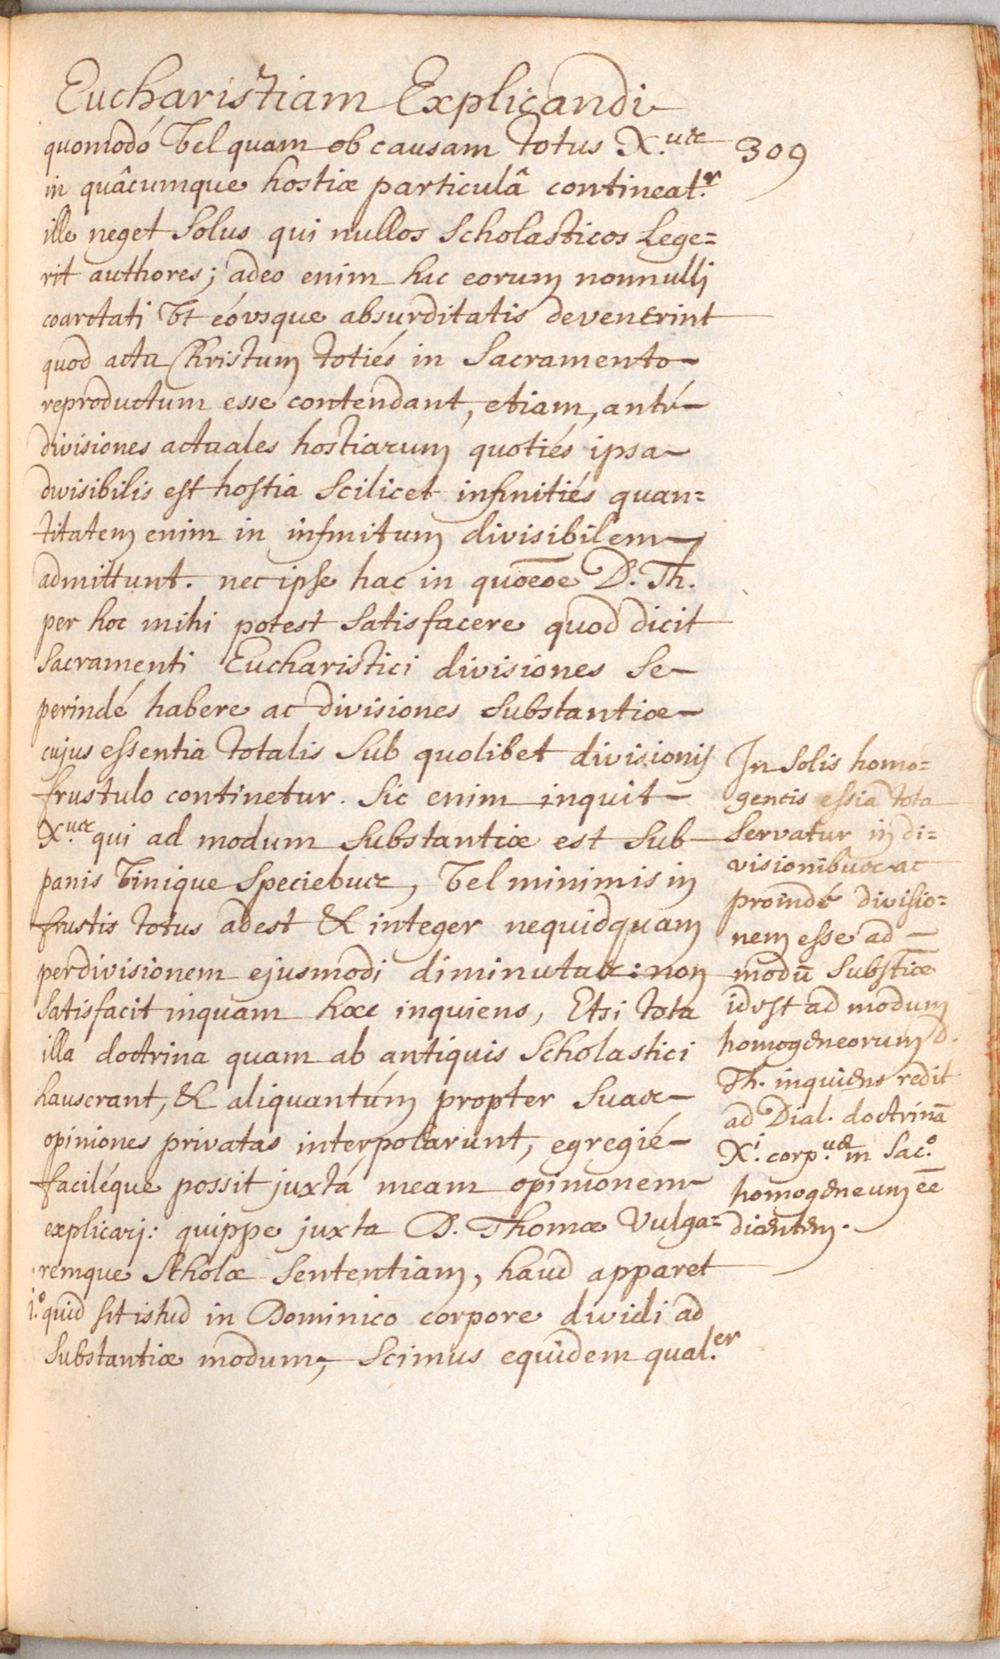 Eucharistiam Explicandi
309
quomodó vel quam ob causam totus X.us
in quâcumque hostiæ particulâ contineat.r
ille neget solus qui nullos scholasticos Lege=
rit authores; adeo enim hac eorum nonnulli
coarctati vt eóvsque absurditatis devenerint
quod actu Christum totiés in Sacramento
reproductum esse contendant, etiam, anté
divisiones actuales hostiarum quotiés ipsa
divisibilis est hostia scilicet infinitiés quan=
titatem enim in infinitum divisibilem
admittunt. nec ipse hac in quõeõe D. Th.
per hoc mihi potest satisfacere quod dicit
sacramenti Eucharistici divisiones se
perindé habere ac divisiones substantiæ
cujus essentia totalis sub quolibet divisionis
frustulo continetur. Sic enim inquit
X.us qui ad modum substantiæ est sub
panis vinique speciebus, vel minimis in
frustis totus adest & integer nequidquam
per divisionem ejusmodi diminutus: non
satisfacit inquam hæc inquiens, Etsi tota
illa doctrina quam ab antiquis scholastici
hauserant, & aliquantúm propter suas
opiniones privatas interpolarunt, egregié
faciléque possit juxtá meam opinionem
explicari: quippe juxta D. Thomæ vulga=
remque scholæ sententiam, haud apparet
1.o quid sit istud in Dominico corpore dividi ad
substantiæ modum; scimus equidem qual.er
In solis homo=
geneis essia tota
servatur in di=
visionibus ac
proindé divisio=
nem esse ad
modū substiæ
id est ad modum
homogeneorum D.
Th. inquiens redit
ad Dial. doctrinā
X.i corp.us in Sac.o
homogeneum ēē
dicentem.